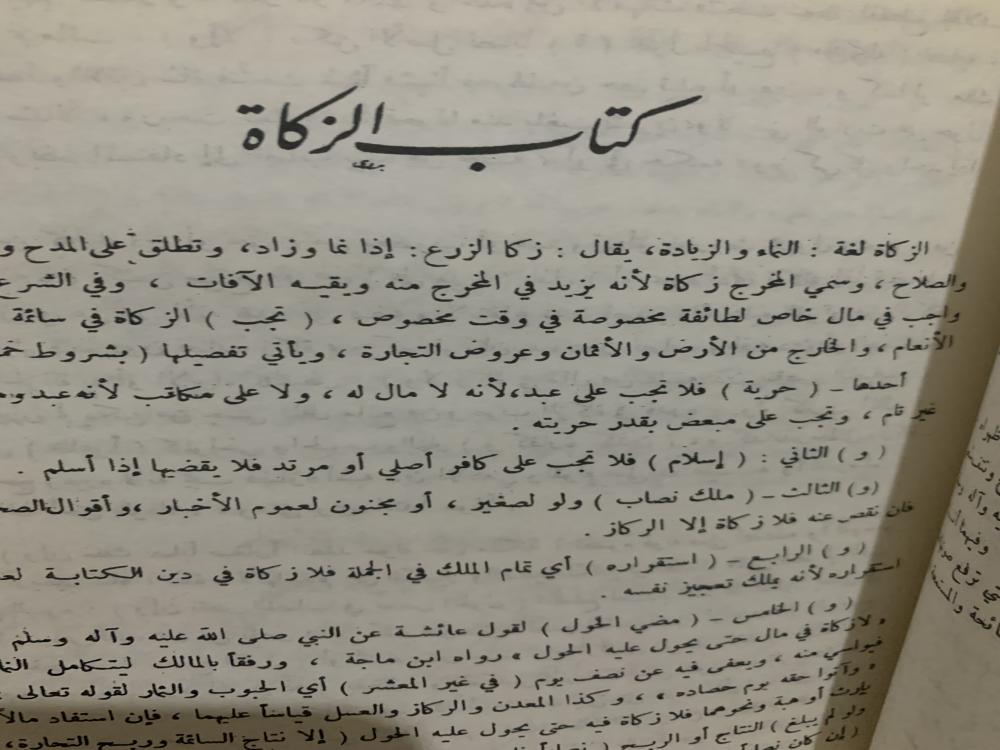 كتاب الزكاة
الزكاة لغة : النماء والزيادة، يقال : زكا الزرع : إذا نما وزاد، وتطلق على المدح و
والصلاح ، وسمي المخرج زكاة لأنه يزيد في المخرج منه ويقيه الآفات ، وفي الشرع
واجب في مال خاص لطائفة مخصوصة في وقت مخصوص ، ( تجب ) الزكاة في سائمة
الأنعام ، والخارج من الأرض والأثمان وعروض التجارة ، ويأتي تفصيلها ( بشروط
أحدها – ( حرية ) فلا تجب على عبد، لأنه لا مال له ، ولا على مكاتب لأنه عبد
غير تام ، وتجب على مبعض بقدر حريته .
( و ) الثاني : ( إسلام ) فلا تجب على كافر أصلي أو مرتد فلا يقضيها إذا أسلم .
(و) الثالث – ( ملك نصاب ) ولو لصغير ، أو مجنون لعموم الأخبار ، وأقوال
فان نقص عنه فلا زكاة إلا الركاز .
( و ) الرابع – ( استقراره ) أي تمام الملك في الجملة فلا زكاة في دين الكتابة
استقراره لأنه يملك تعجيز نفسه .
( و ) الخامس – ( مضي الحول ) لقول عائشة عن النبي صلى الله عليه وآله وسلم
« لا زكاة في مال حتى يحول عليه الحول » رواه ابن ماجة ، ورفقاً بالمالك ليتكامل
فيواسي منه ، ويعفى فيه عن نصف يوم ( في غير المعشر ) أي الحبوب والثمار لقوله تعالى
« وآتوا حقه يوم حصاده » ، وكذا المعدن والركاز والعسل قياساً عليهما ، فإن استفاد مالاً
بإرث أو هبة ونحوهما فلا زكاة فيه حتى يحول عليه الحول ( إلا نتاج السائمة وربح التجارة ،
ولو لم يبلغ ) النتاج أو الربح
( إن كان